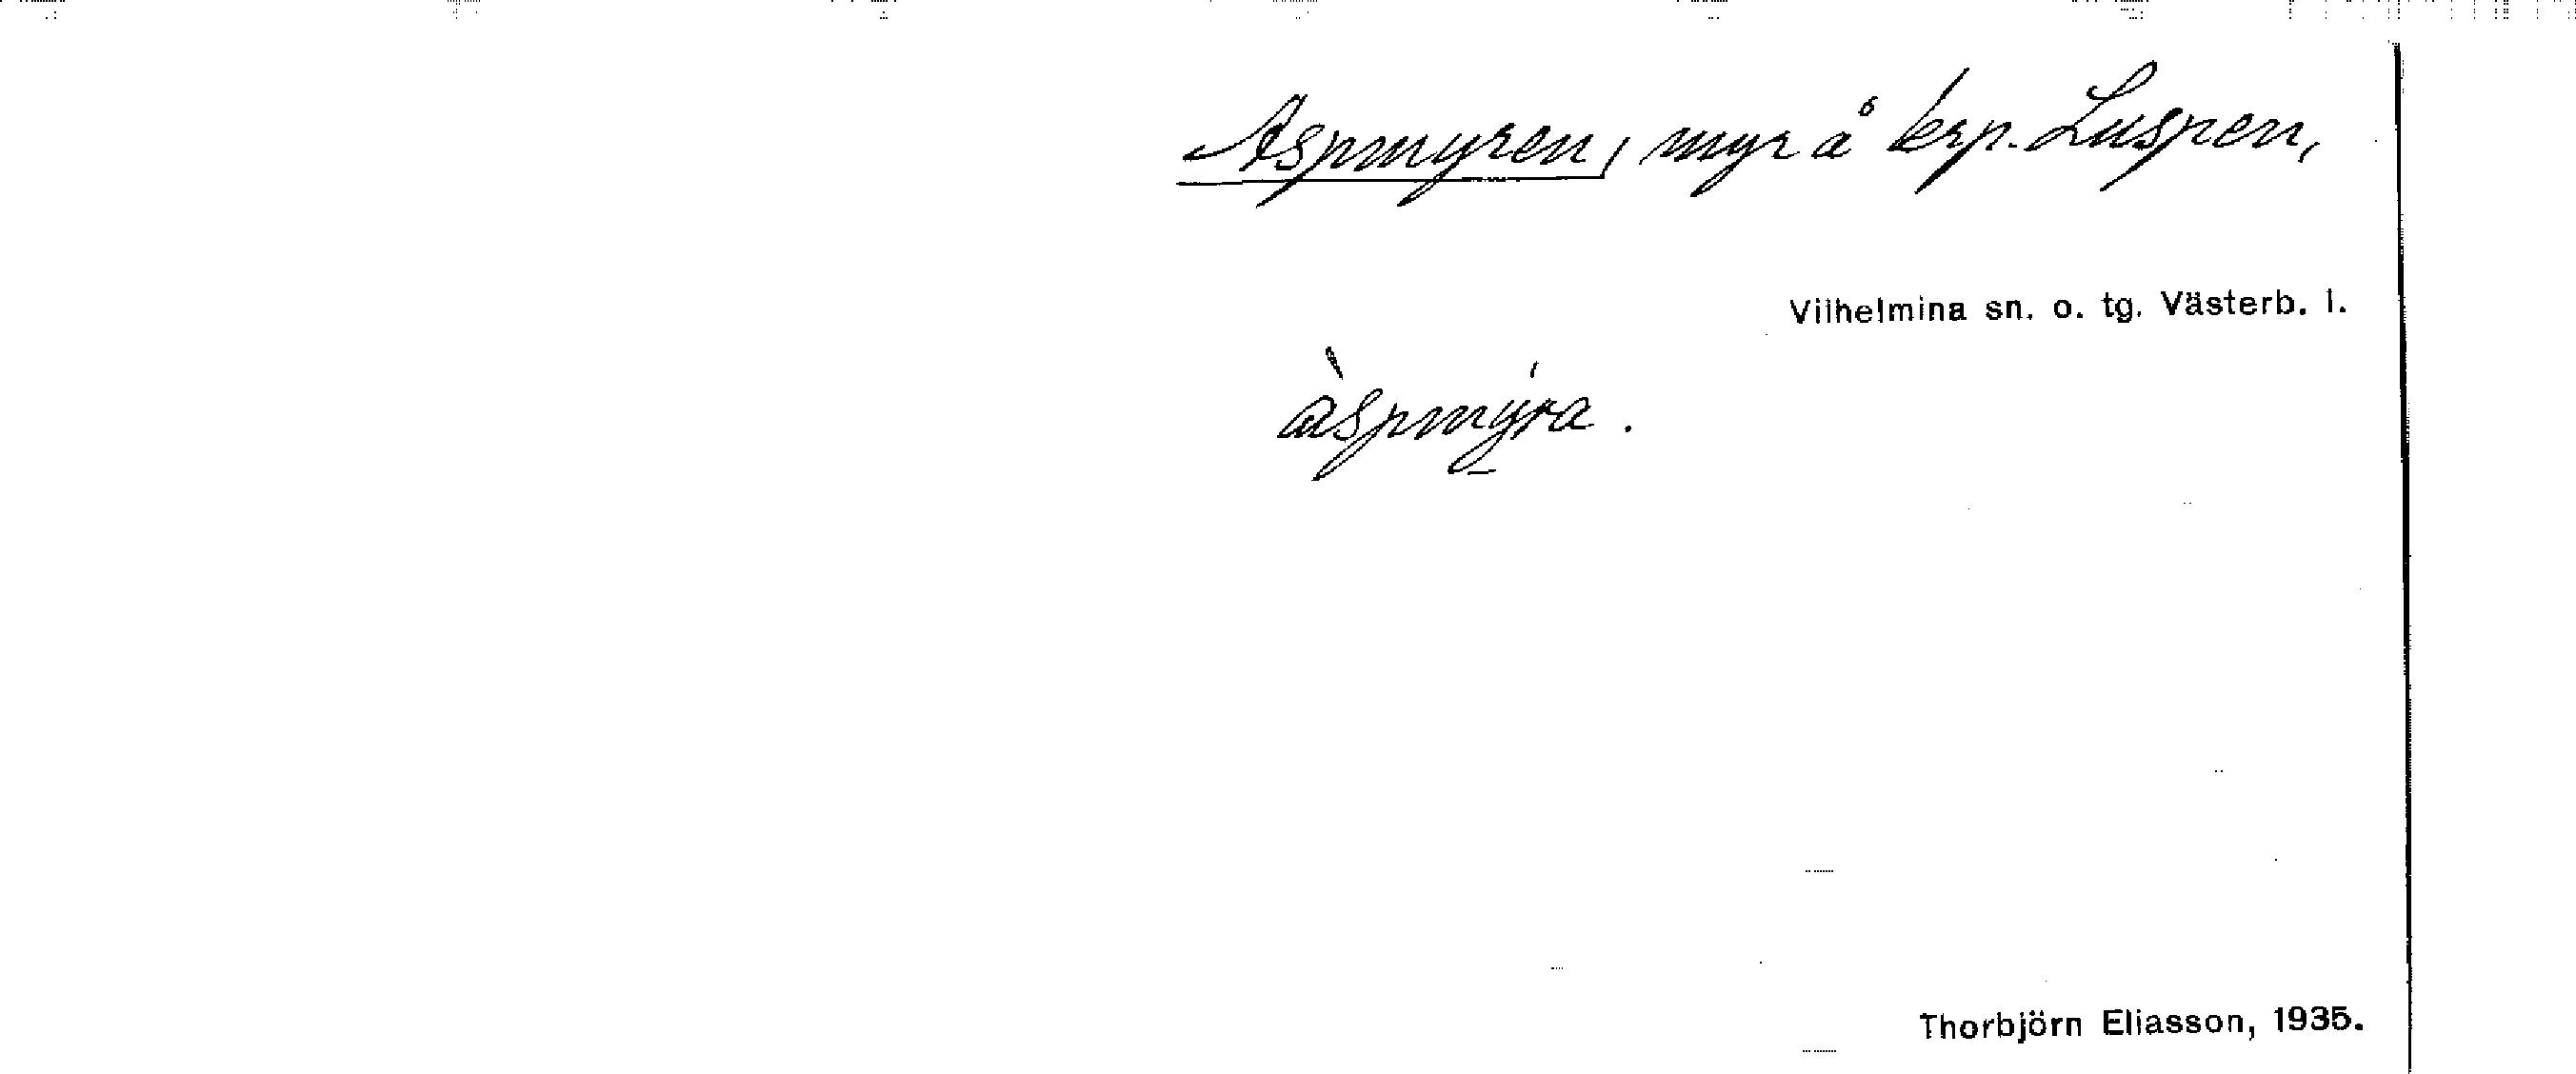 Aspmyren, myr å krp. Luspen,
Vilhelmina sn. o. tg. Västerb. l.
àspmýra.
Thorbjörn Eliasson, 1935.